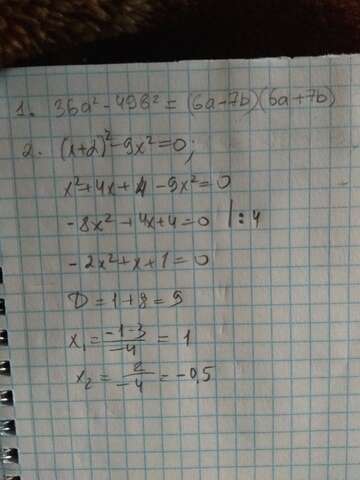 1. 36a² - 49b² = (6a-7b)(6a+7b)
2. (x+2)² - 9x² = 0;
x² + 4x + 4 - 9x² = 0
-8x² + 4x + 4 = 0 |: 4
-2x² + x + 1 = 0
D = 1 + 8 = 9
x₁ = \frac{-1-3}{-4} = 1
x₂ = \frac{2}{-4} = -0,5